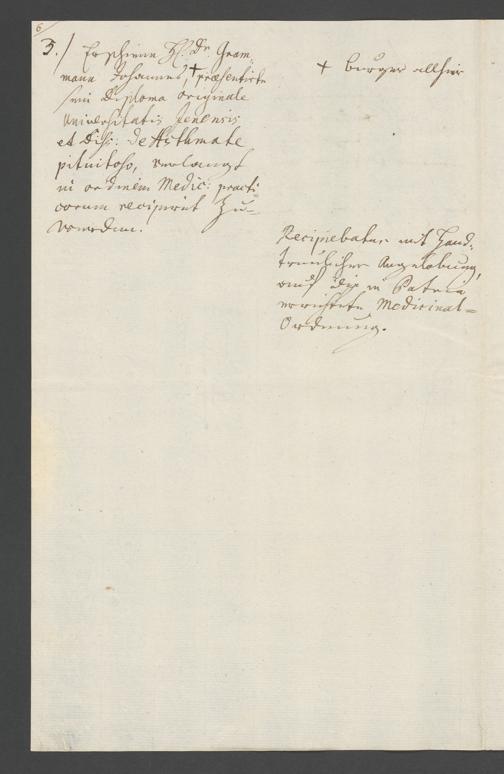 6
3./ Erschiene H. Dr Gram-
mann Johannes + præsentirte
sein Diploma originale
Universitatis Jenensis
et Disp: de Asthmate
pituitoso, verlangt
in ordinem Medic: practi-
corum recipirt zu-
werden.
+ burger allhier
Recipiebatur mit Hand-
treulicher Angelobung,
auf die in Patria
errichtete Medicinal-
Ordnung.